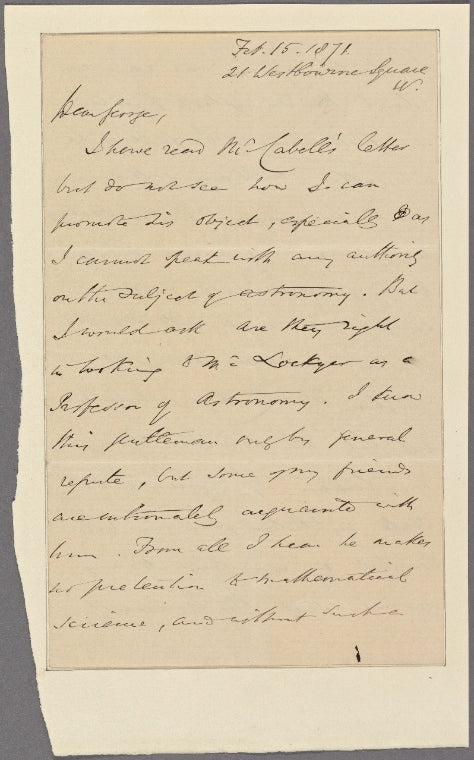 Feb. 15. 1871
21 Westbourne Square
W.
Dear George,
I have read Mr Cabell's letter
but do not see how I can
promote his object, especially as
I cannot speak with any authority
on the subject of astronomy. But
I would ask are they right
in looking to Mr Lockyer as a
Professor of Astronomy. I know
this gentleman only by general
repute, but some of my friends
are intimately acquainted with
him. From all I hear he makes
no pretention to mathematical
science, and without such a